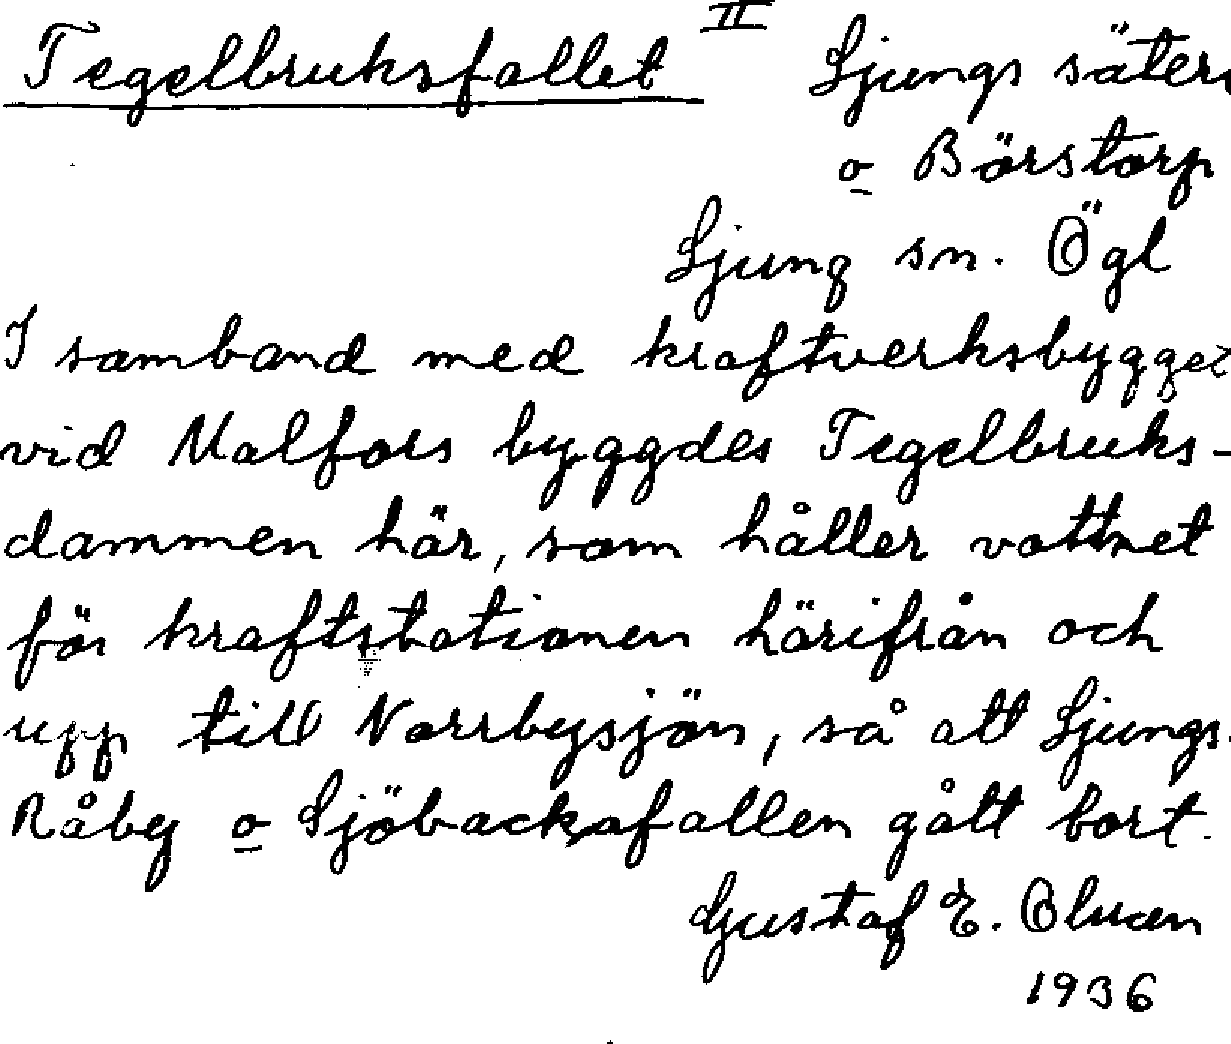 Tegelbruksfallet II Ljungs säteri
o Börstorp
Ljung sn. Ögl
I samband med kraftverksbygget
vid Malfors byggdes Tegelbruks-
dammen här, som håller vattnet
för kraftstationen härifrån och
upp till Norrbysjön, så att Ljungs-
Råby o Sjöbackafallen gått bort.
Gustaf E.
1936